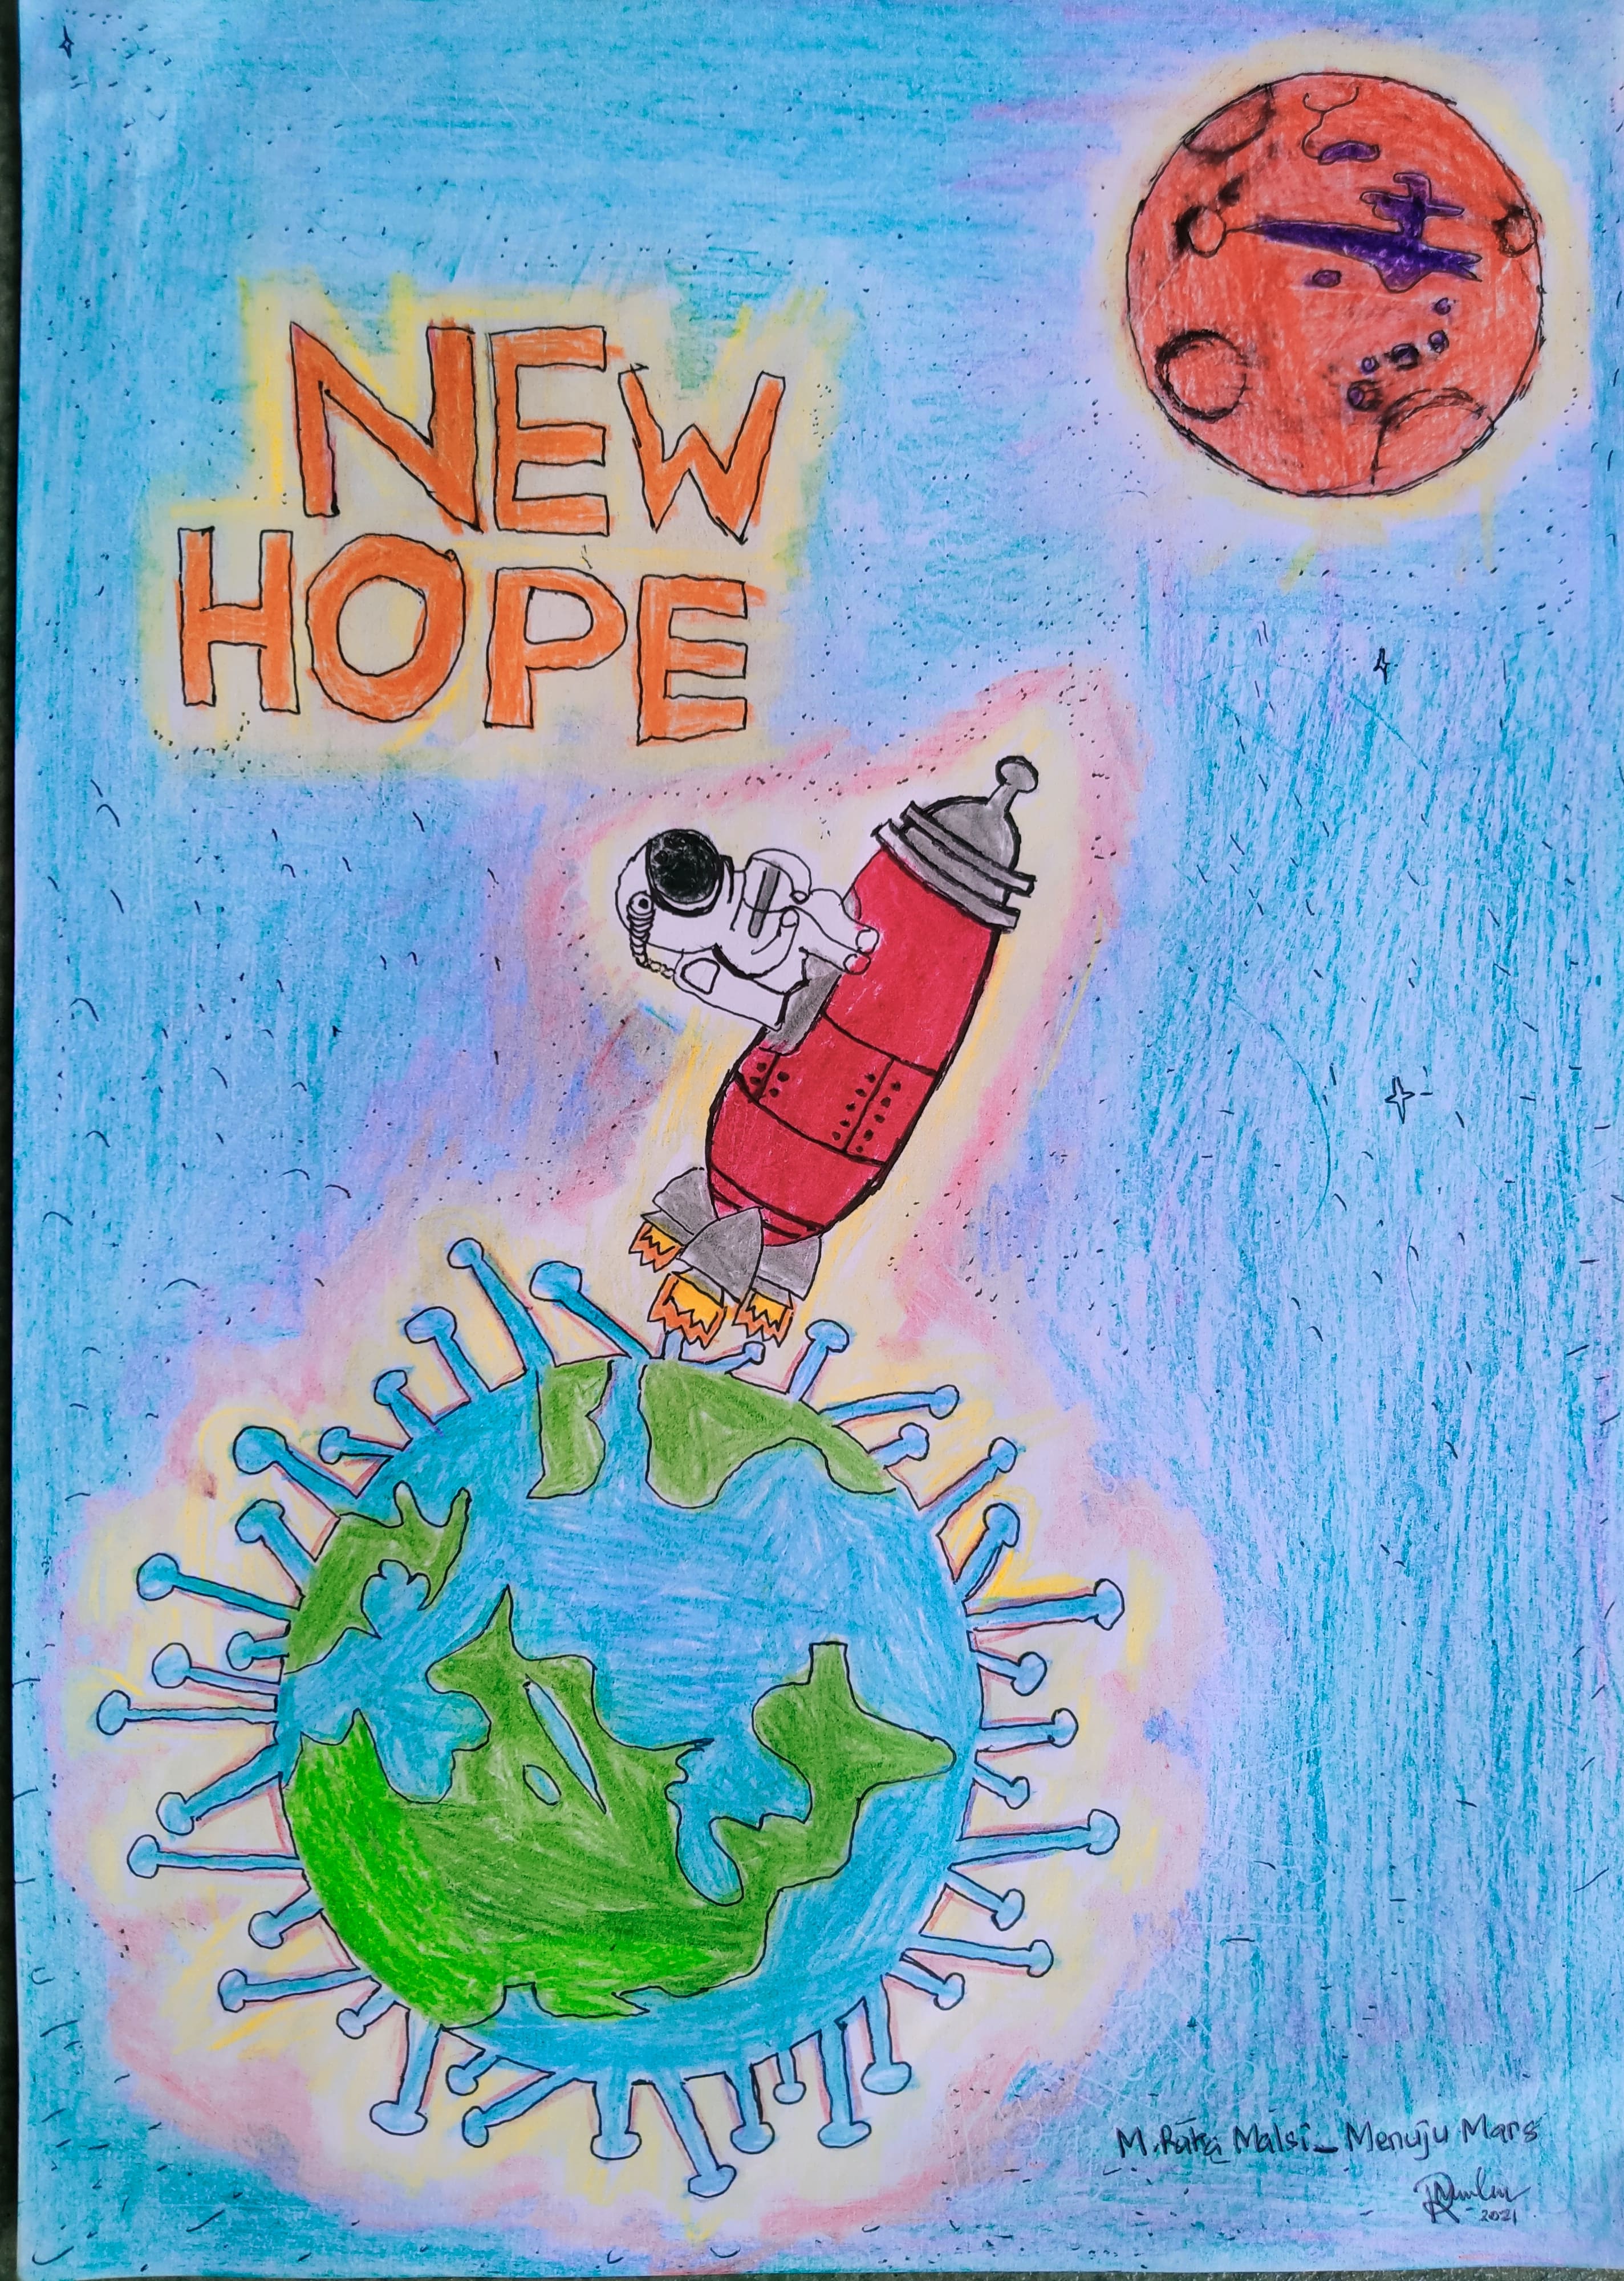 NEW
HOPE
M. Raka Malsi_ Menuju Mars
2021